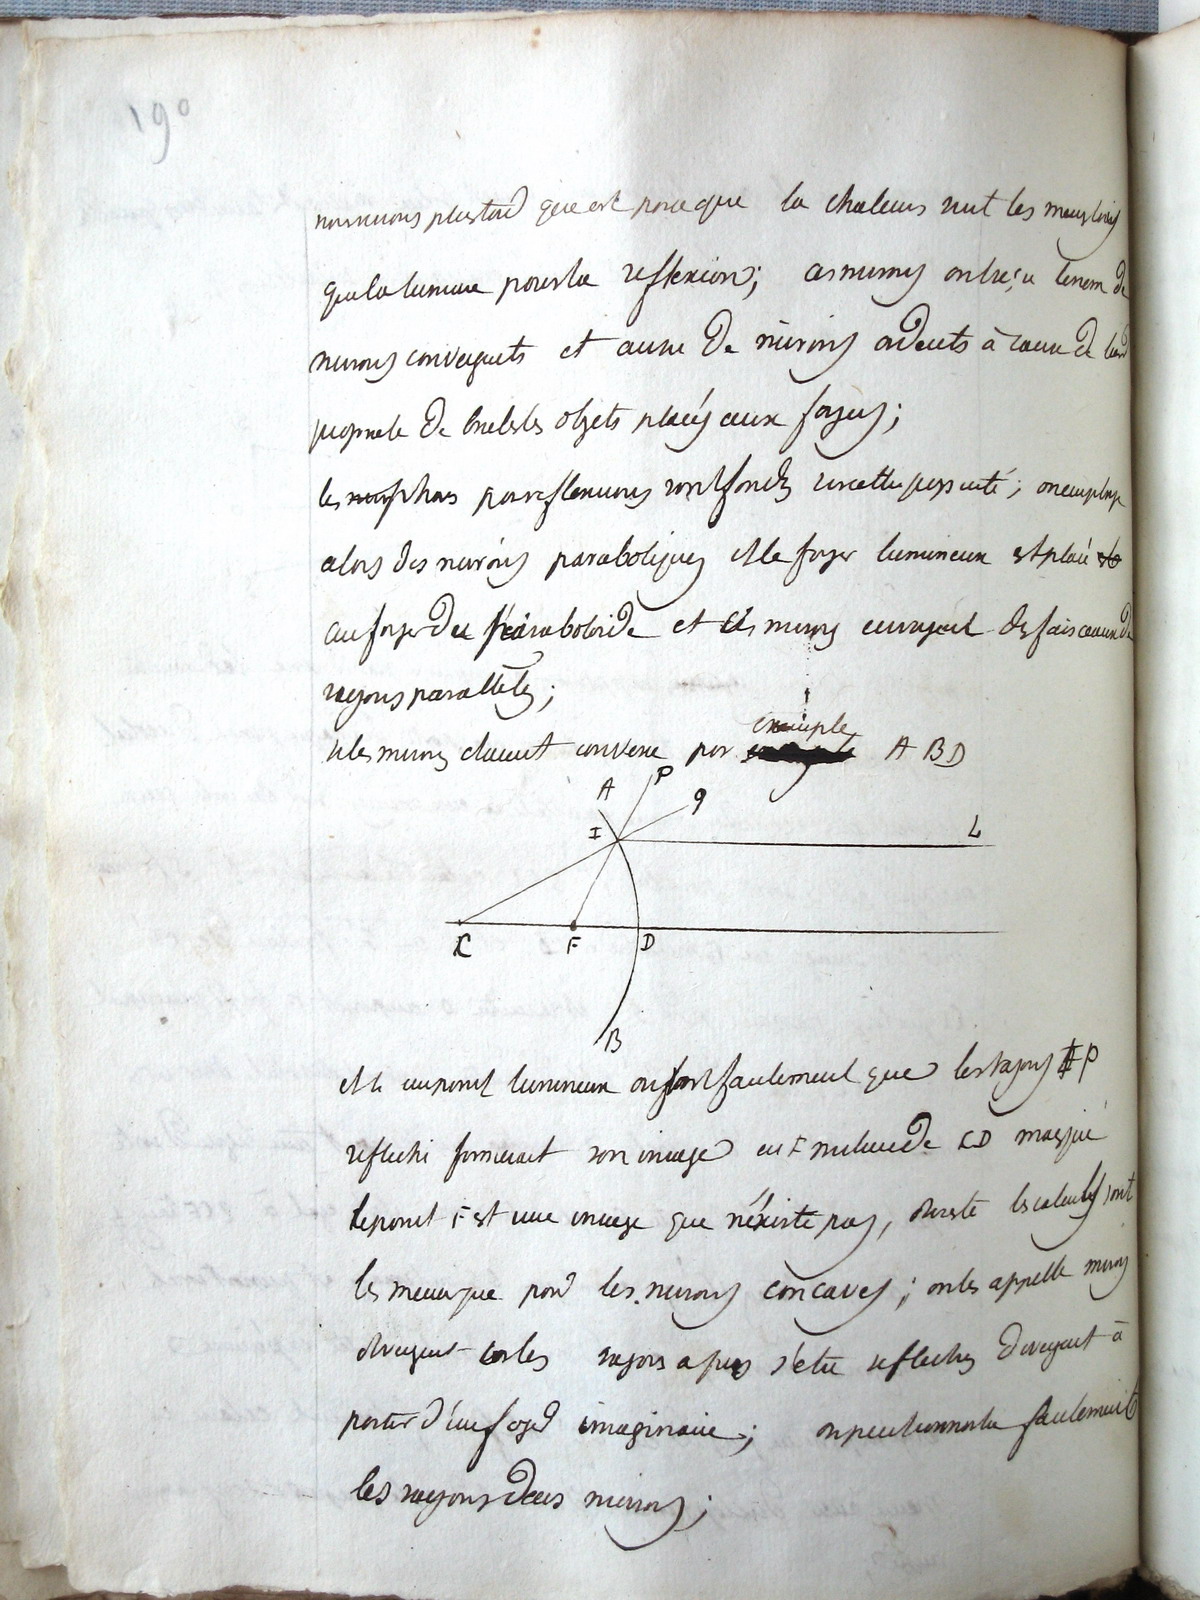 190
nous verrons plustard que c'est parceque la chaleur suit les meme loix
que la lumiere pour la reflexion; ces miroirs ont reçu le nom de
miroirs convergents et aussi de miroirs ardents à cause de leur
propriete de bruler les objets placés aux foyers;
les phares sont fondes sur cette propriété; on emploie
alors des miroirs paraboliques et le foyer lumineux est placé
au foyer du paraboloide et ces miroirs envoyent des faisceaux de
rayons parallèles;
si les miroirs etaient convexe par exemple A B D
A P q
I L
C F D
B
et le point lumineux on voit facilement que les rayons I P
reflechi formerait son image en F milieu de C D mais
le point F est une image que n'éxiste pas, du reste les calculs sont
les meme que pour les miroirs concaves; on les appelle miroirs
divergent car les rayons apres s'etre reflechis divergent à
partir d'un foyer imaginaire; on peut connoitre facilement
les rayons des miroirs;